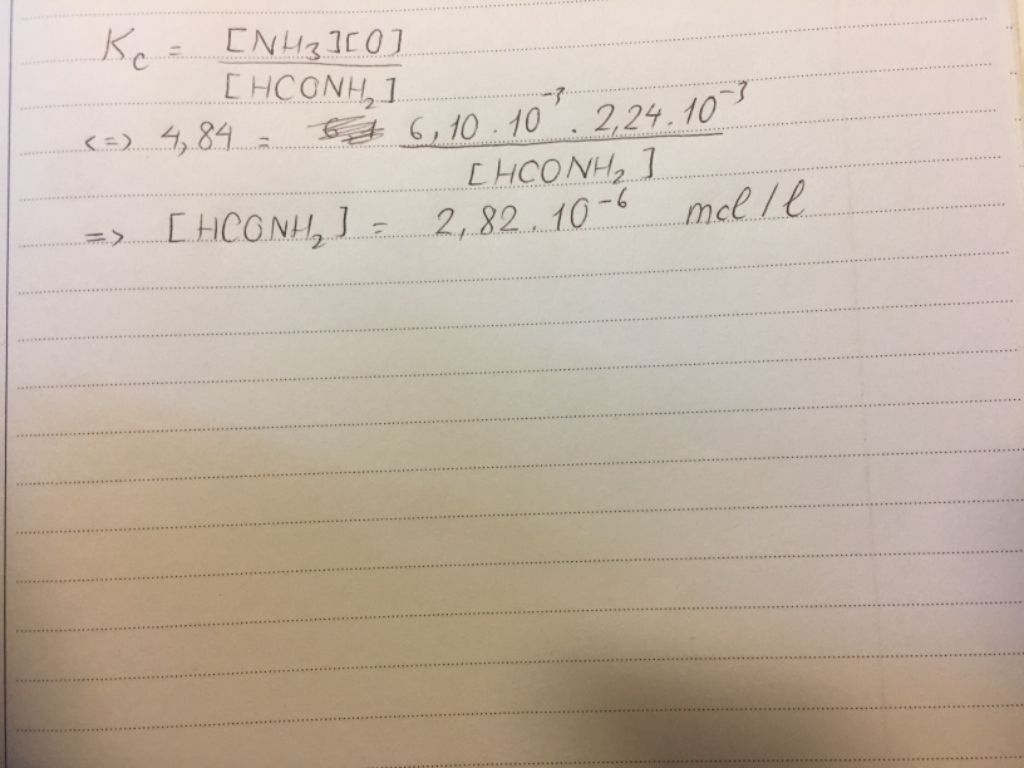 Kc = [NH₃][O] / [HCONH₂]
<=> 4,84 = 6,10 . 10⁻³ . 2,24 . 10⁻³ / [HCONH₂]
=> [HCONH₂] = 2,82 . 10⁻⁶ mol/l